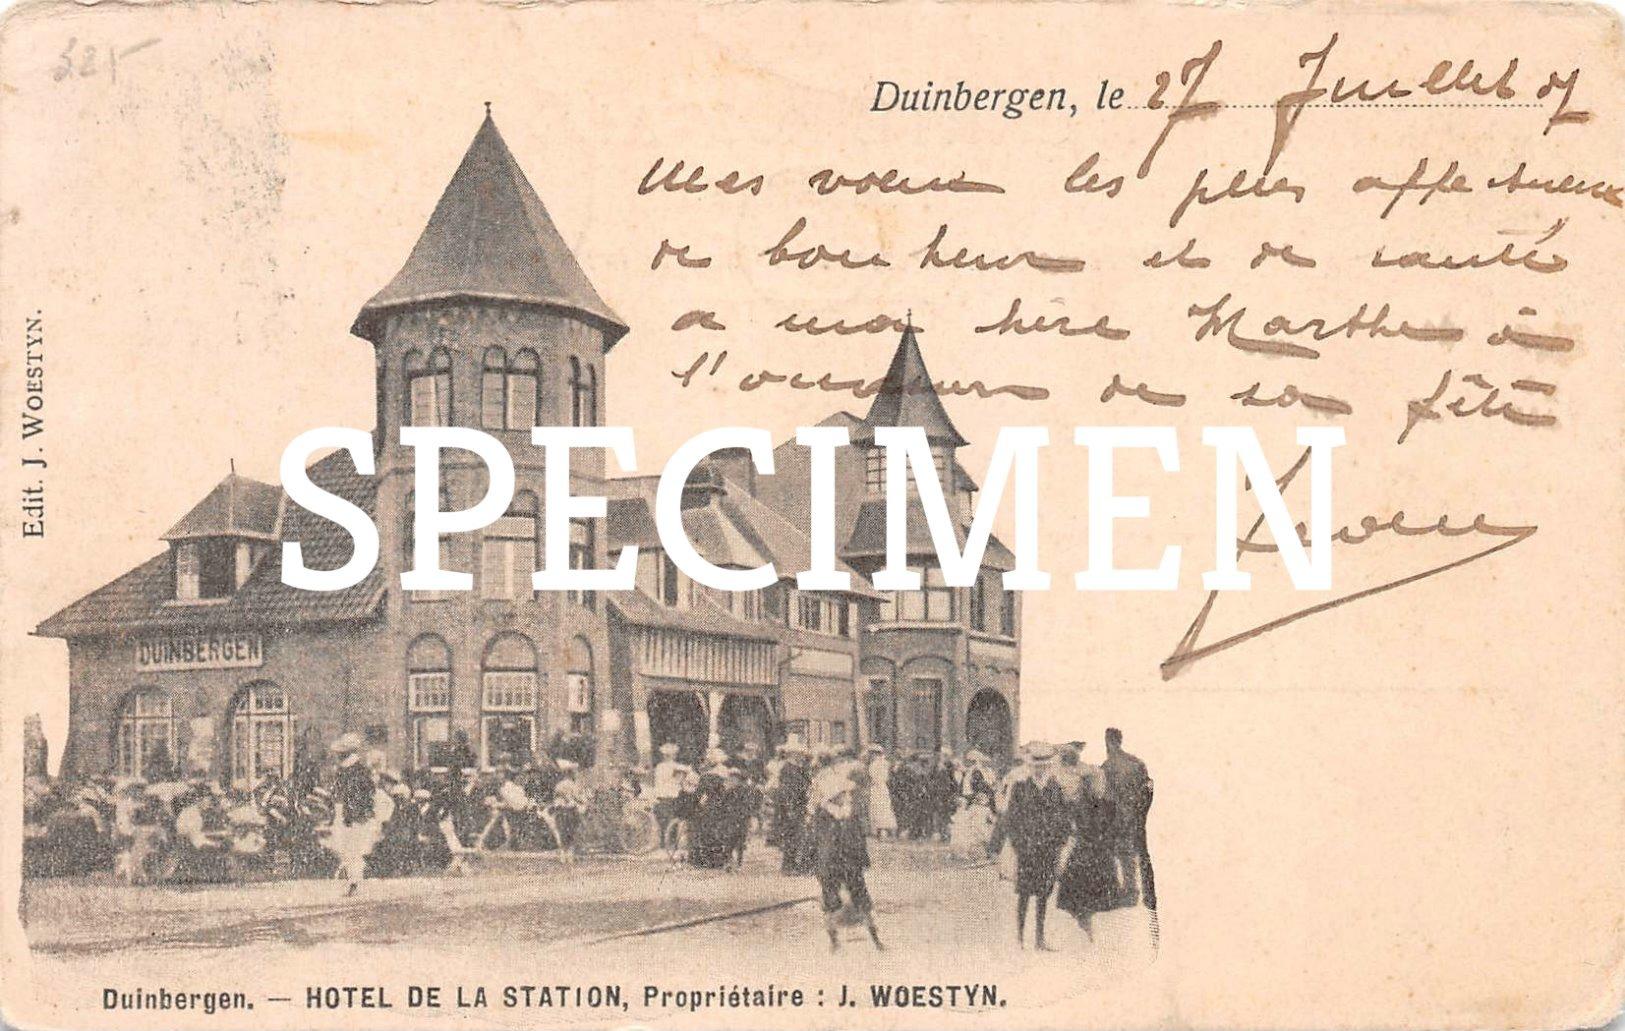 525
Duinbergen, le 27 Juillet 07
Mes voeux les plus affectueux
de bonheur et de santé
a ma chère Marthe à
l'occasion de sa fête
SPECIMEN
Edit. J. WOESTYN.
DUINBERGEN
Duinbergen. — HOTEL DE LA STATION, Propriétaire : J. WOESTYN.